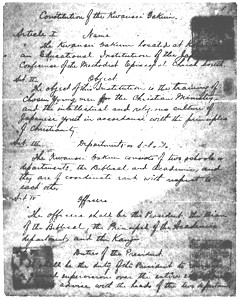 Constitution of the Kwansei Gakuin.
Article I Name
The Kwansei Gakuin located at
an Educational Institution of the
Conference of the Methodist Episcopal Church South
Art II Object
The object of this Institution is the training of
chosen young men for the Christian Ministry
and the intellectual and religious culture of
Japanese youth in accordance with the principles
of Christianity.
Art III Departments
The Kwansei Gakuin consists of two schools or
departments, the Biblical and Academic, and
they are of coordinate rank with respect to
each other
Art IV Officers
The officers shall be the President, the Dean
of the Biblical, the Principal of the Academic
department, and the
Duties of the President
shall be the duty of the President to
supervision over the entire
advice with the heads of the two departments